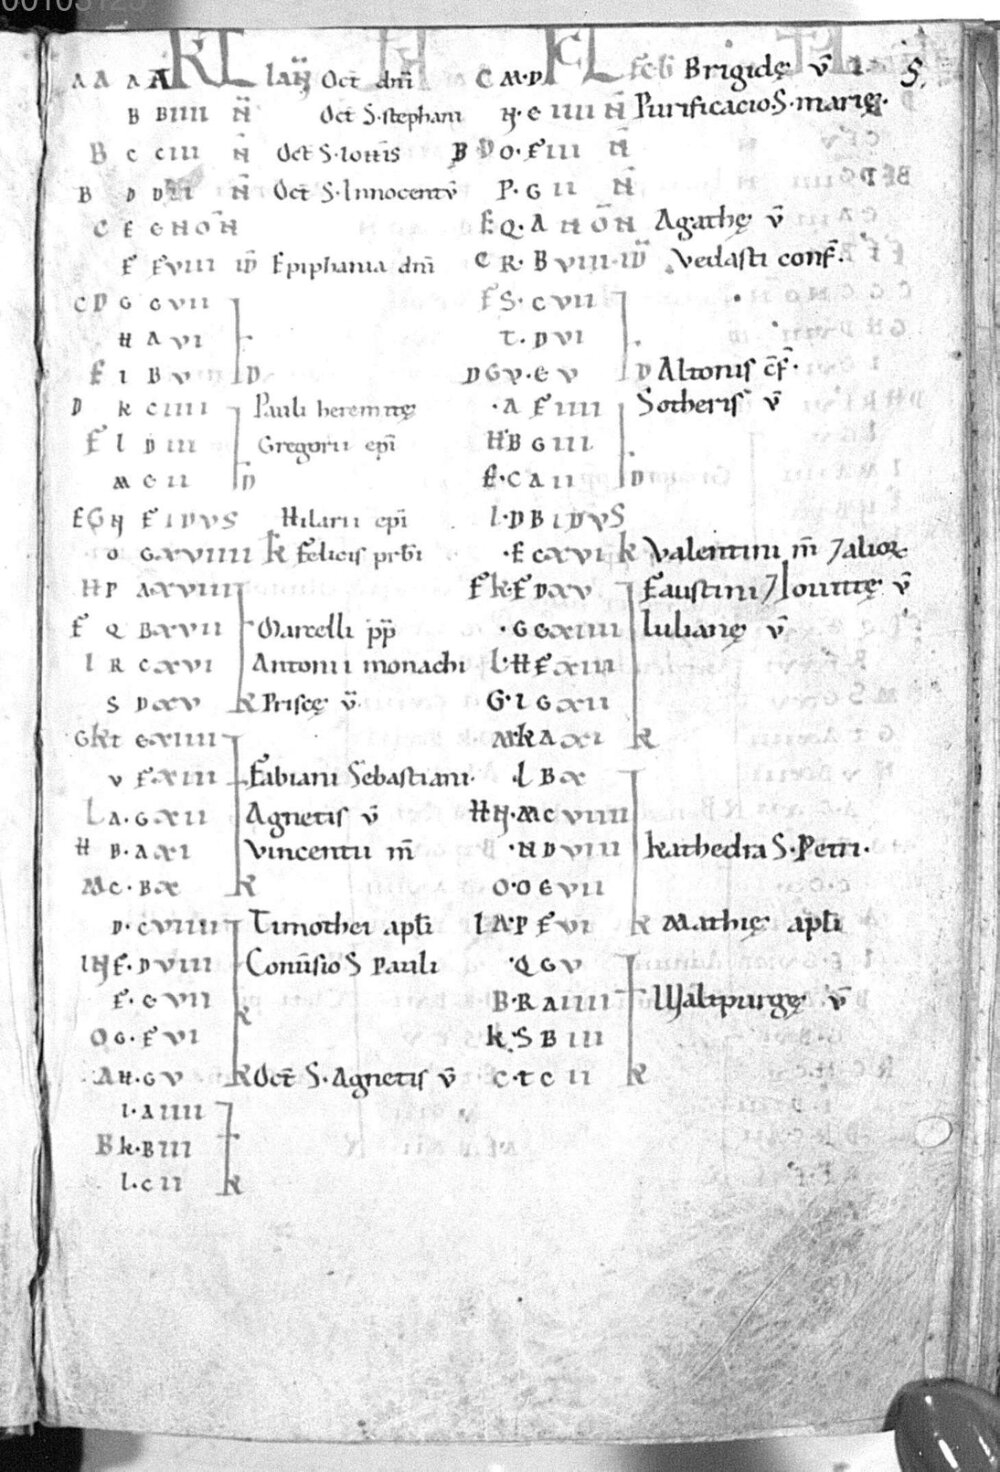 00103125
5.
A A A A KL Ian̄ Oct̄ dm̄
B BIIII N̄ Oct̄ S. stephani
B C CIII N̄ Oct̄ S. Ioh̄is
B D DII N̄ Oct̄ S. Innocentv̄
C E E NON̄
F FVIII ID̄ Epiphania dm̄
C D G GVII
H A VI
E I B V D
D K CIIII Pauli heremitę
E L D III Gregorii ep̄i
M E II D
E G N F IDVS Hilarii ep̄i
O GXVIIII K̄ Felicis prb̄i
H P AXVIIII
F Q BXVII Marcelli p̄p̄
I R CXVI Antonii monachi
S DXV K Priscę v̄
G K T EXIIII
V FXIII Fabiani Sebastiani.
L A. GXII Agnetis v̄
H B. AXI Vincentii m̄
M C. BX K
D. CVIIII Timothei apl̄i
I N E. DVIII Conūsio S Pauli
F. EVII K
O G. FVI
A H. G V K Oct̄ S. Agnetis v̄
I. AIIII
B K. BIII
L. C II K
C M. D KL Feb̄ Brigidę v̄ I.
N. E IIII N̄ Purificacio S. marię.
B D O. F III N̄
P. G II N̄
E Q. A NŌN Agathę v̄
C R. BVIII. ID̄ Vedasti conf̄.
F S. C VII
T. D VI
D G V. E V D Altonis c̄f̄.
. A F IIII Sotheris v̄
H B G III
E. C A II D
I. D B IDVS
. E CXVI K Valentini m̄ 7 alioꝝ
F K. F DXV Faustini 7 Iouittę v̄
. G EXIIII Iulianę v̄
L. H FXIII
G. I GXII
M. K A XI K
. L B X
H N. M CVIIII
. N DVIII kathedra S. Petri.
O. O EVII
I A. P F VI K Mathię apl̄i
. Q G V
B. R A IIII Waltpurgę v̄
K. S B III
C. T C II K